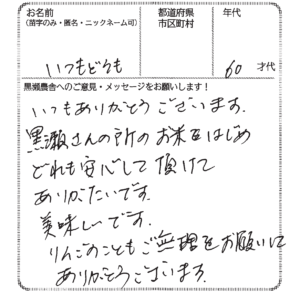 お名前
(苗字のみ・匿名・ニックネーム可)
都道府県
市区町村
年代
いつもどうも
60 才代
黒瀬農舎へのご意見・メッセージをお願いします!
いつもありがとうございます.
黒瀬さんの所のお米をはじめ
どれも安心して頂けて
ありがたいです.
美味しいです.
りんごのこともご無理をお願いして
ありがとうございます.